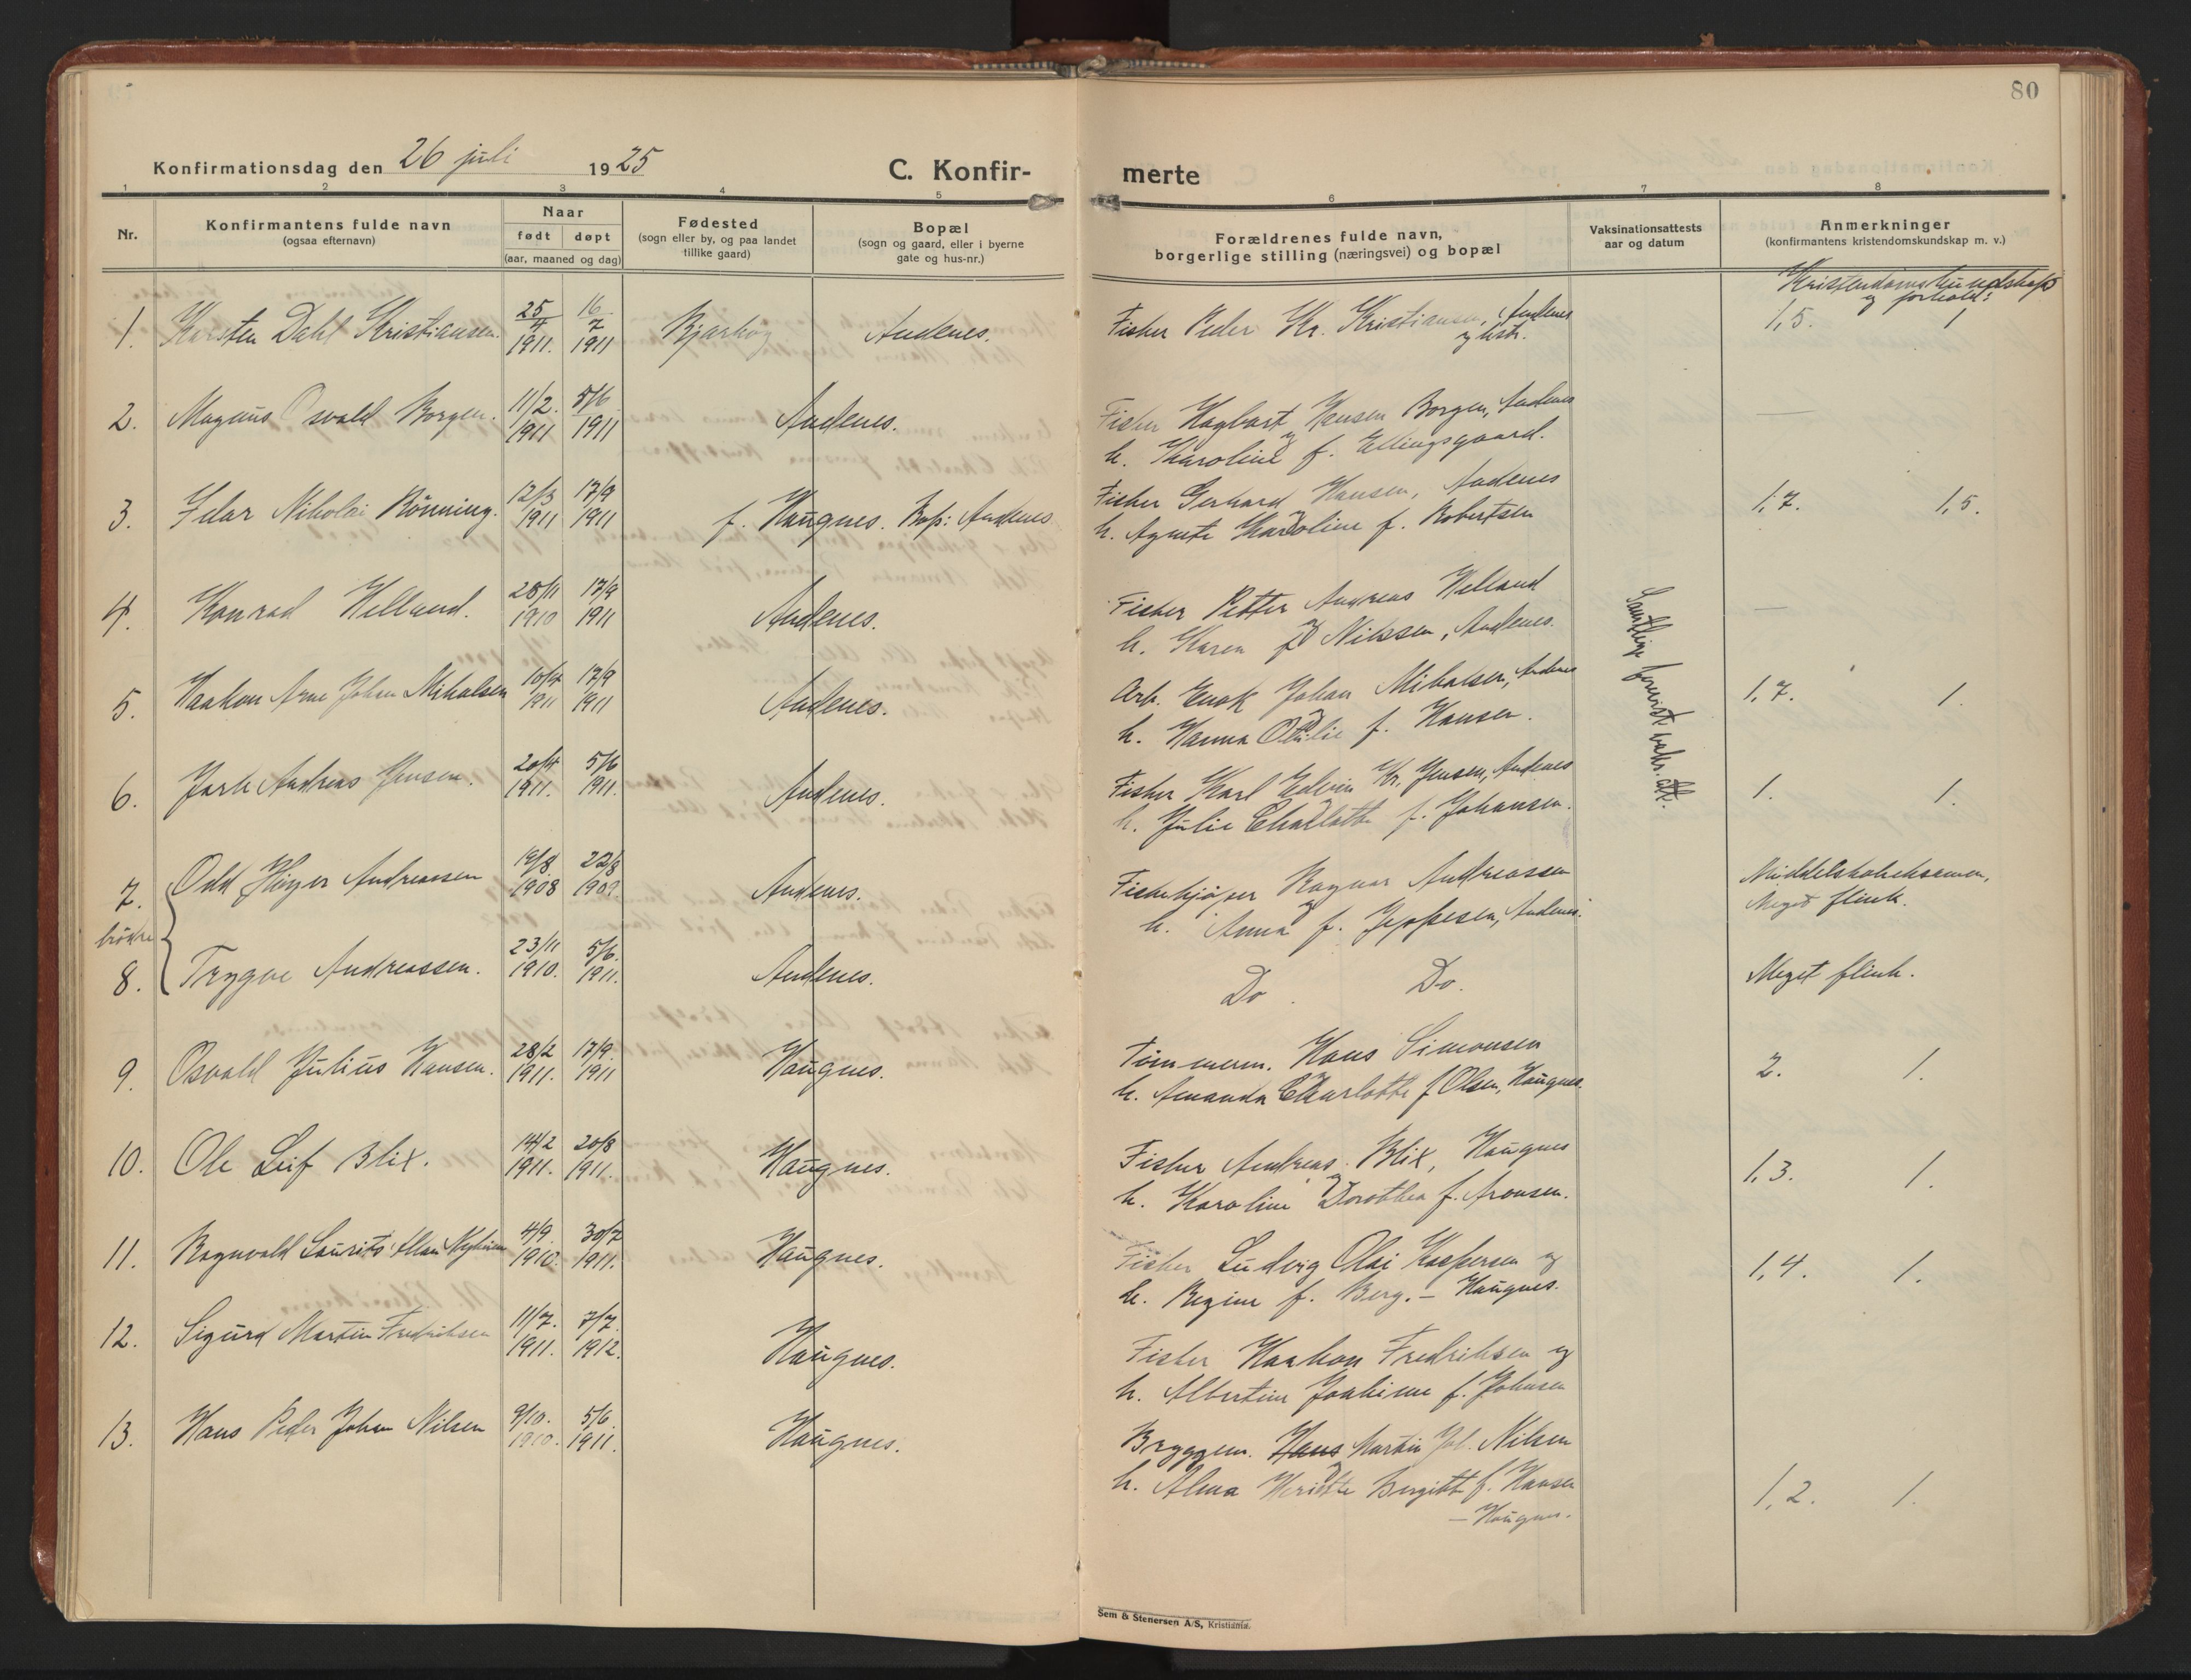 80
Konfirmationsdag den 26 juli 1925
C. Konfir-
merte
1 2 3 4 5 6 7 8
Nr.
Konfirmantens fulde navn
(ogsaa efternavn)
Naar
født døpt
(aar, maaned og dag)
Fødested
(sogn eller by, og paa landet
tillike gaard)
Bopæl
(sogn og gaard, eller i byerne
gate og hus-nr.)
Forældrenes fulde navn,
borgerlige stilling (næringsvei) og bopæl
Vaksinationsattests
aar og datum
Anmerkninger
(konfirmantens kristendomskundskap m. v.)
Kristendomskundskap
og forhold:
1. Karsten Dahl Kristiansen. 25/4 1911. 16/7 1911 Bjarkøy Andenes. Fisker Peder Kr. Kristiansen, Andenes 1,5. 1
og hstr.
2. Magnus Osvald Borgen. 11/2. 1911 5/6 1911 Andenes. Fisker Hagbart Hansen Borgen, Andenes —
og
h. Karoline f. Ellingsgaard.
3. Nikolai Rönning. 12/3 1911 17/9 1911 f. Haugnes. Bop: Andenes Fisker Gerhard Hansen, Andenes 1,7. 1,5.
og
h. Agnete Karoline f. Robertsen
4. Konrad Helland. 28/11 1910 17/9 1911 Andenes. Fisker Petter Andreas Helland —
og
h. Karen f. Nilssen, Andenes.
5. Haakon Arne Johan Mikalsen 10/4 1911 17/9 1911 Andenes. Arb. Enok Johan Mikalsen, Andenes 1,7. 1.
og
h. Hanna Otilie f. Hansen.
6. Jarle Andreas Jensen. 20/4 1911. 5/6 1911. Andenes. Fisker Karl Edvin Kr. Jensen, Andenes 1. 1.
og
h. Julie Charlotte f. Johansen.
Samtlige forevist vaks. att.
7. Odd Andreassen 19/8. 1908 22/8 1909. Andenes. Fiskekjøper Ragnar Andreassen Middelskoleeksamen,
og
h. Anna f. Jeppesen, Andenes. Meget flink.
brødre
8. Trygve Andreassen. 23/11 1910. 5/6. 1911. Andenes. Do. Do. Meget flink.
9. Osvald Julius Hansen. 28/2 1911. 17/9. 1911 Haugnes. Tömmerm. Hans Simonsen 2. 1.
og
h. Amanda Charlotte f Olsen, Haugnes.
10. Ole Leif Blix. 14/2 1911. 20/8 1911. Haugnes. Fisker Andreas Blix, Haugnes 1,3. 1.
og
h. Karoline Dorothea f. Aronsen.
11. Ragnvald Laurits Allan 4/9. 1910. 30/7 1911. Haugnes. Fisker Ludvig Olai Kaspersen og 1,4. 1.
h. Regine f. Berg. — Haugnes.
12. Sigurd Martin Fredriksen 11/7. 1911. 7/7. 1912. Haugnes. Fisker Haakon Fredriksen og
h. Albertine Joakime f. Johnsen
13. Hans Peder Johan Nilsen 9/10. 1910. 5/6. 1911. Haugnes. Bryggem. Hans Martin Joh. Nilsen
og
h. Alma Bergitte f. Hansen 1,2. 1.
— Haugnes.
Sem & Stenersen A/S, Kristiania.